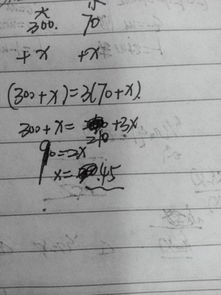 大 小
300. 70
+x +x
(300+x)=3(70+x).
300+x=210+3x
90=2x
x=45